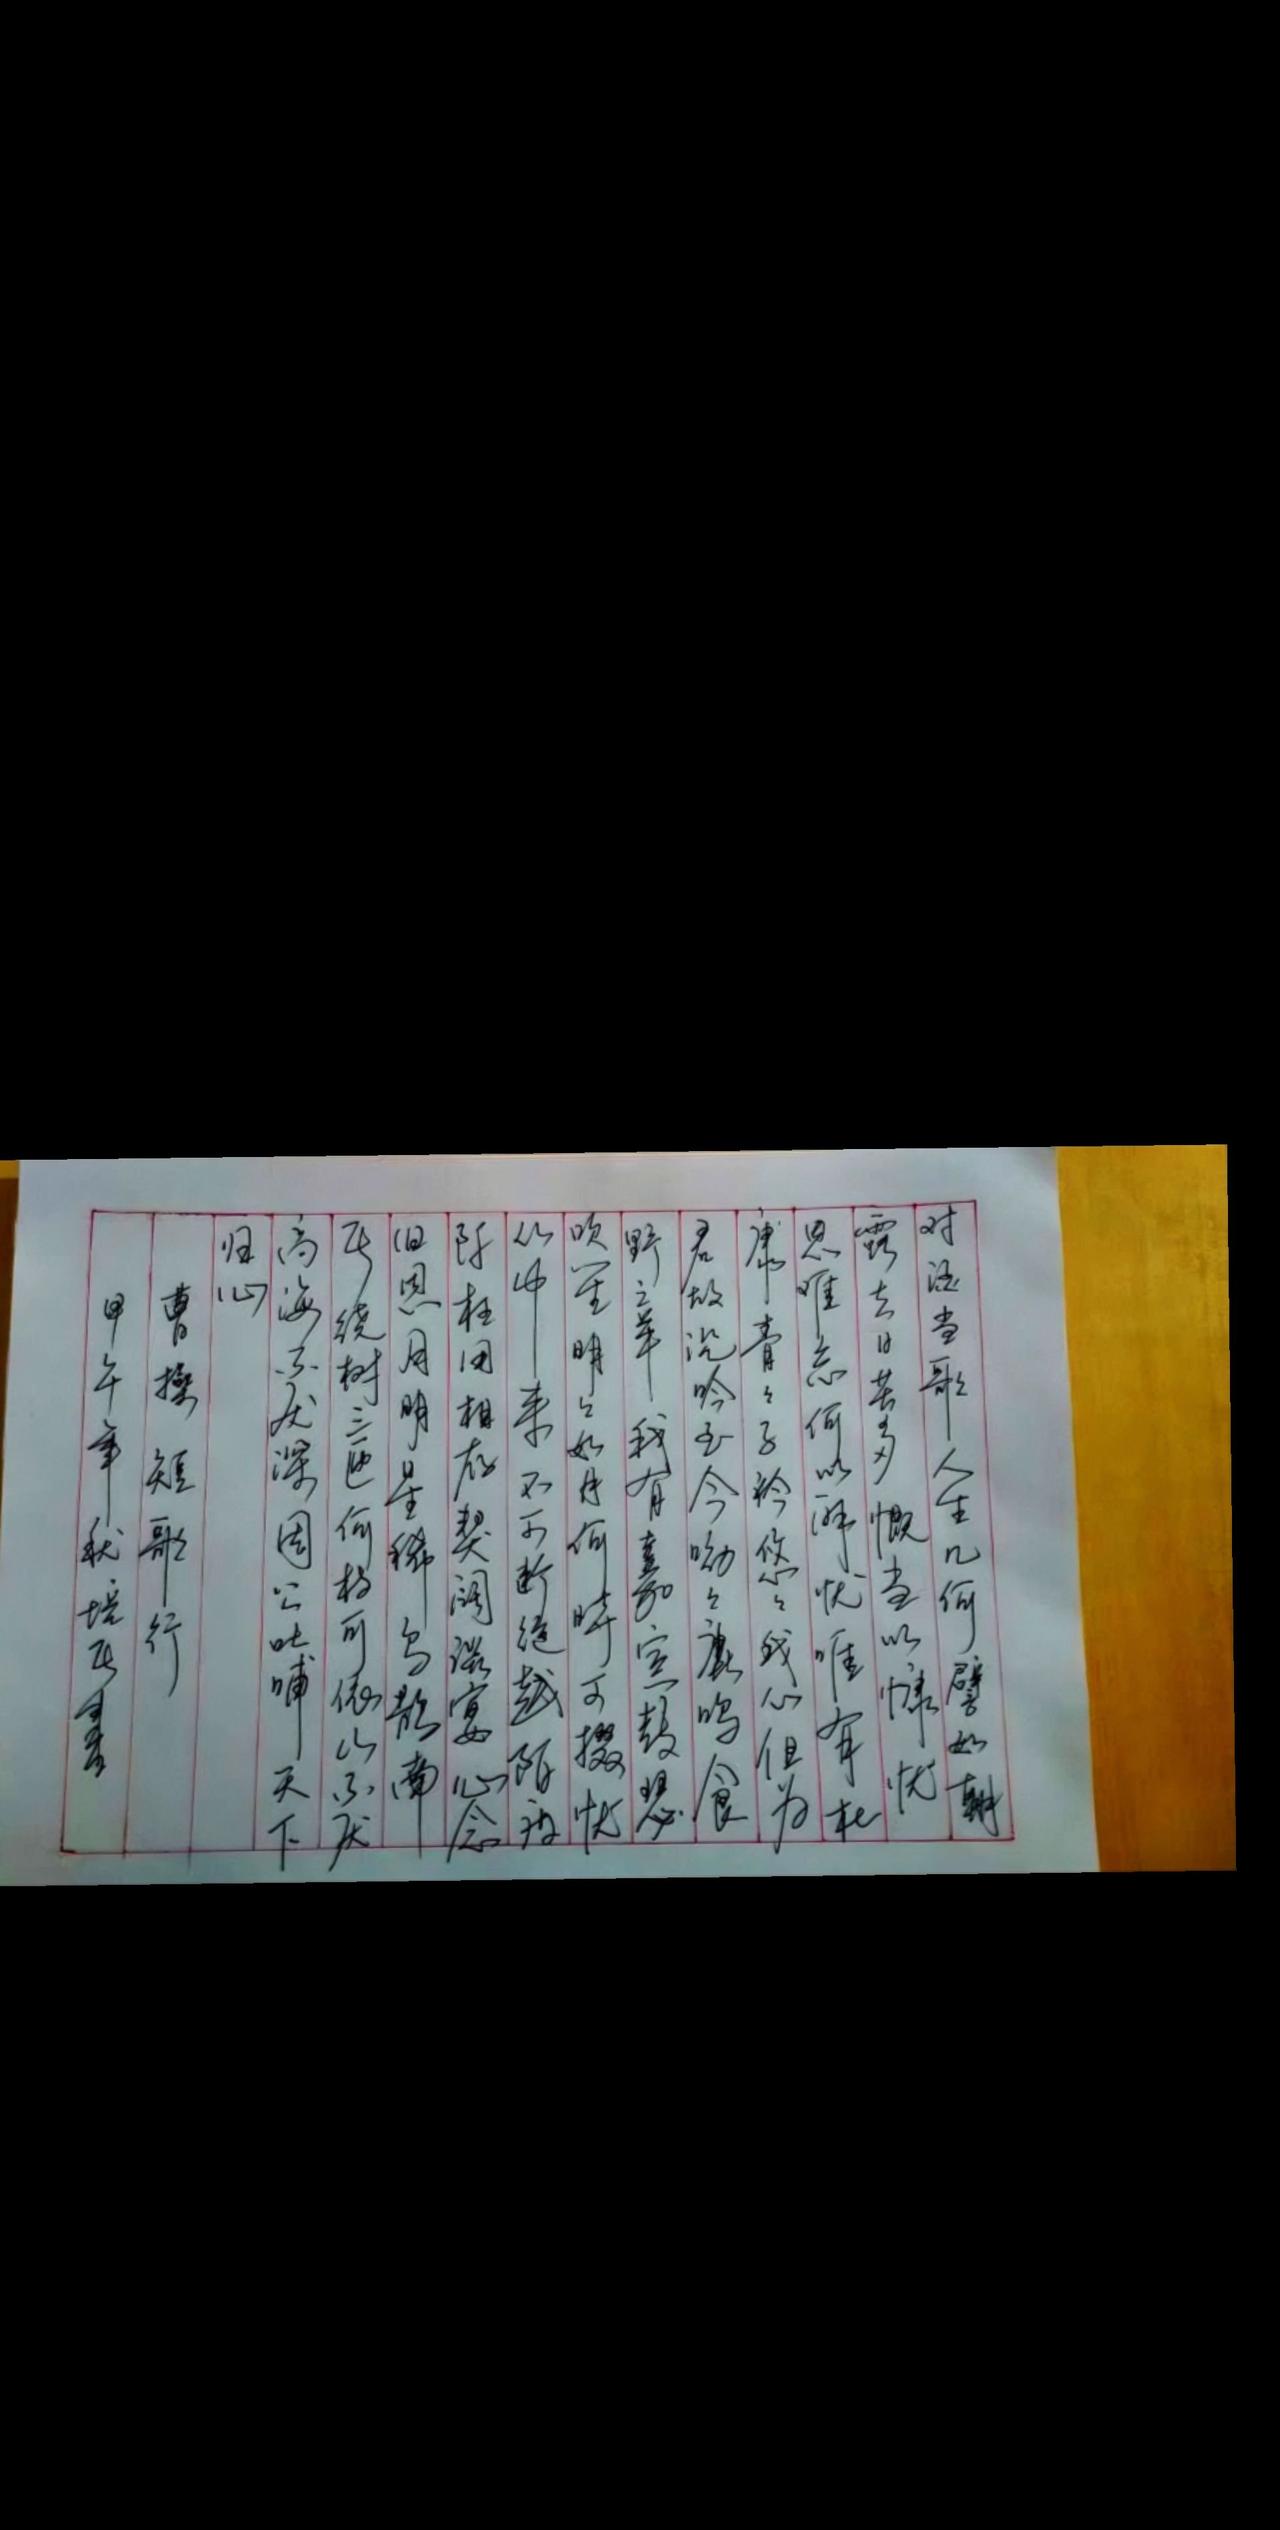 对酒当歌人生几何譬如朝
露去日苦多慨当以慷忧
思难忘何以解忧唯有杜
康青々子衿悠々我心但为
君故沉吟至今呦々鹿鸣食
野之苹我有嘉宾鼓瑟
吹笙明々如月何时可掇忧
从中来不可断绝越陌度
阡枉用相存契阔谈宴心念
旧恩月明星稀乌鹊南
飞绕树三匝何枝可依山不厌
高海不厌深周公吐哺天下
归心
曹操 短歌行
甲午年秋培飞书